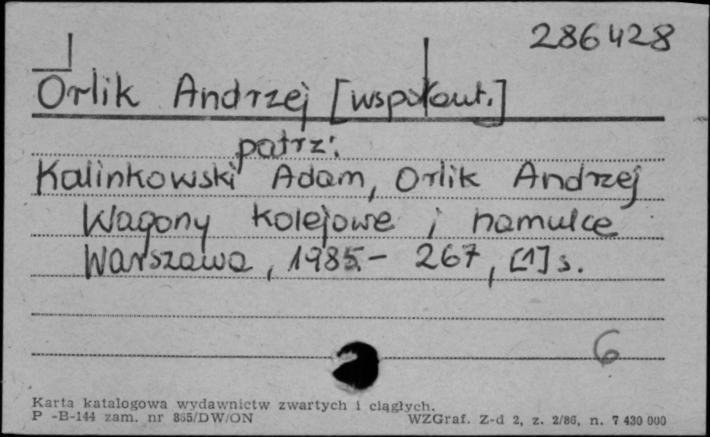 286428
Orlik Andrzej [współaut.]
patrz:
Kalinkowski Adam, Orlik Andrzej
Wagony kolejowe i hamulce
Warszawa, 1985.- 267, [1] s.
6
Karta katalogowa wydawnictw zwartych i ciągłych.
P -B-144 zam. nr 865/DW/ON WZGraf. Z-d 2, z. 2/86, n. 7 430 000